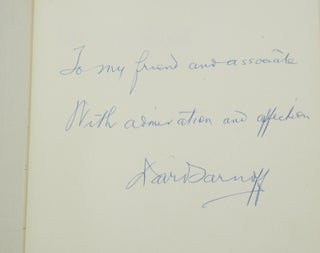 To my friend and associate
With admiration and affection